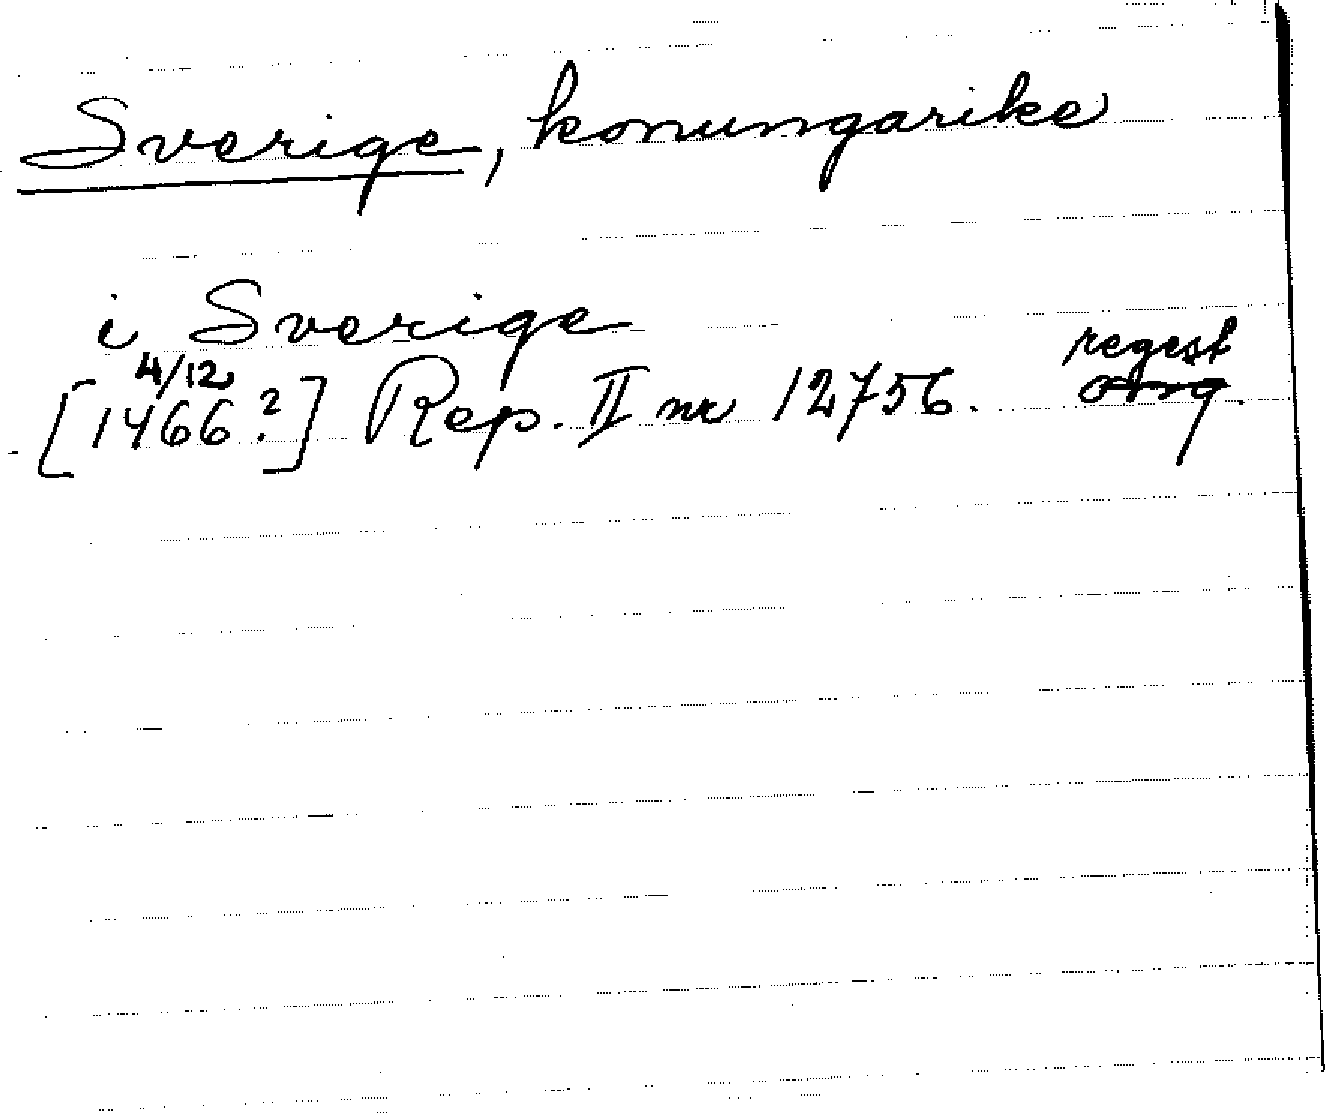 Sverige, konungarike
i Sverige
4/12 regest
[1466?] Rep. II nr 12756. orig.